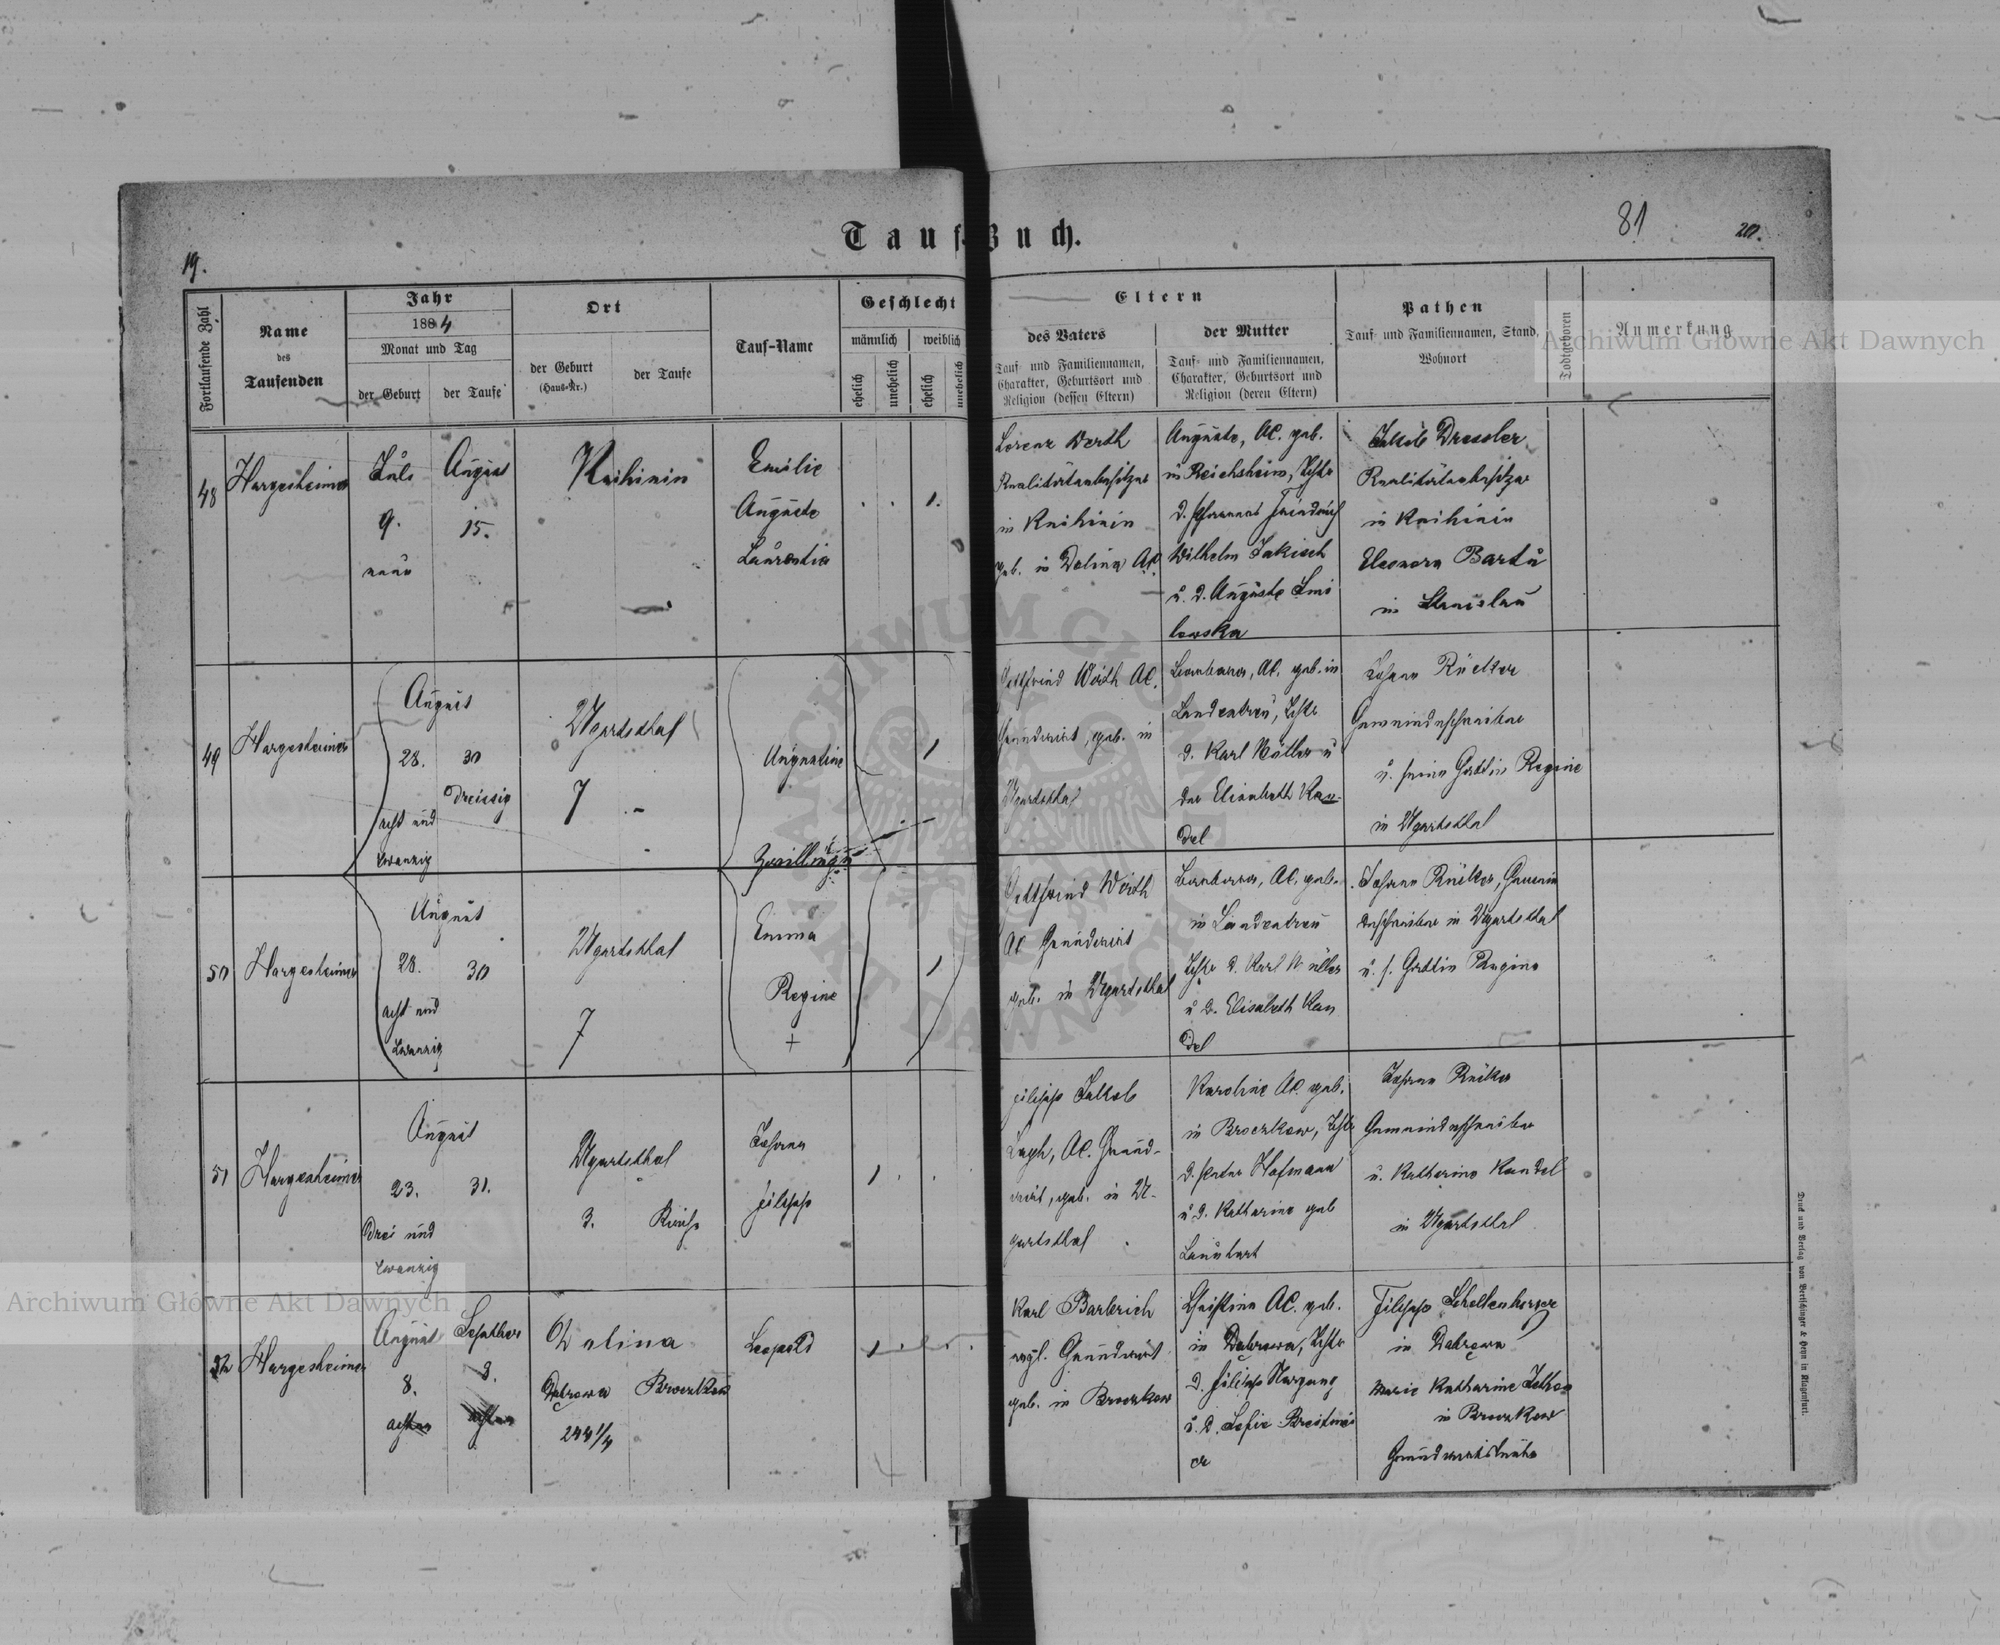 Tauf-Buch.
19.
81
20.
Fortlaufende Zahl
Name
des
Taufenden
Jahr
1884
Monat und Tag
der Geburt
der Taufe
Ort
der Geburt
(Haus-Nr.)
der Taufe
Tauf-Name
Geschlecht
männlich
weiblich
ehelich
unehelich
ehelich
unehelich
Eltern
des Vaters
Tauf- und Familiennamen,
Charakter, Geburtsort und
Religion (dessen Eltern)
der Mutter
Tauf- und Familiennamen,
Charakter, Geburtsort und
Religion (deren Eltern)
Pathen
Tauf- und Familiennamen, Stand,
Wohnort
Todtgeboren
Anmerkung
48
Hargesheimer
Juli
9.
neun
August
15.
Knihinin
Emilie
Auguste
Laurentia
1.
Lorenz Werth
Realitätenbesitzer
in Knihinin
geb. in Dolina AC.
Auguste, AC. geb.
in Reichsheim, Tchtr
d. Johannes Friedrich
Wilhelm Jakisch
u. d. Auguste
Jakob Dressler
Realitätenbesitzer
in Knihinin
Eleonora Bartu
in Stanislau
49
Hargesheimer
August
28.
acht und
zwanzig
30
Dreissig
Ugartsthal
7
Augustine
Zwillinge
1
Gottfried Wirth AC.
Grundwirt, geb. in
Ugartsthal
Barbara, AC. geb. in
Landestreu, Tchtr
d. Karl Müller u
der Elisabeth Kan-
del
Johann Rücker
Gemeindeschreiber
u. seine Gattin Regine
in Ugartsthal
50
Hargesheimer
August
28.
acht und
zwanzig
30
Ugartsthal
7
Emma
Regine
+
1
Gottfried Wirth
AC Grundwirt
geb. in Ugartsthal
Barbara, AC. geb.
in Landestreu
Tchtr d. Karl Müller
u d. Elisabeth Kan
del
Johann Rücker, Gemein
deschreiber in Ugartsthal
u. s. Gattin Regine
51
Hargesheimer
August
23.
Drei und
zwanzig
31.
Ugartsthal
3.
Johann
Filipp
1
Filipp Jakob
AC. Grund-
wirt, geb. in U-
gartsthal
Karoline AC. geb.
in Broczkow, Tchtr
d. Peter Hofmann
u d. Katharine geb
Johann Rücker
Gemeindeschreiber
u. Katharine Kandel
in Ugartsthal
52
Hargesheimer
August
8.
achten
September
3.
Dolina
Dabrowa
244 1/4
Broczkow
Leopold
1
Karl Barbrich
evgl. Grundwirt
geb. in Broczkow
Christine AC. geb.
in Dabrowa, Tchtr
d. Filipp
u. d. Sofie
Filipp Schellenberger
in Dabrowa
Marie Katharine
in Broczkow
Grundwirtsleute
Druck und Verlag von Bertschinger & Heyn in Klagenfurt.
Archiwum Główne Akt Dawnych
Archiwum Główne Akt Dawnych
ARCHIWUM GŁÓWNE AKT DAWNYCH